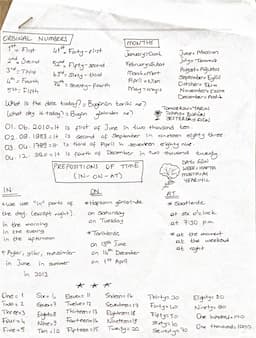 ORDINAL NUMBERS
1st = First 41st = Forty-first
2nd = Second 52nd = Fifty-second
3rd = Third 63rd = Sixty-third
4th = Fourth 74th = Seventy-fourth
5th = Fifth
MONTHS
January: Ocak June: Haziran
February: Şubat July: Temmuz
March: Mart August: Ağustos
April: Nisan September: Eylül
May: Mayıs October: Ekim
November: Kasım
December: Aralık
What is the date today? = Bugünün tarihi ne?
What day is today? = Bugün günlerden ne?
TOMORROW: YARIN
TODAY: BUGÜN
YESTERDAY: DÜN
01. 06. 2010 = It is first of June in two thousand ten.
02. 09. 1983 = It is second of September in nineteen eighty three.
03. 04. 1989 = It is third of April in nineteen eighty nine.
04. 12. = It is fourth of December in two thousand twenty
PREPOSITIONS OF TIME
(IN-ON-AT)
DAY: GÜN
WEEK: HAFTA
MONTH: AY
YEAR: YIL
IN
* we use "in" parts of
the day. (except night).
in the morning
in the evening
in the afternoon
* Aylar, yıllar, mevsimler
in June in summer
in 2012
ON
* Haftanın günlerinde
on Saturday
on Tuesday
* Tarihlerde
on 15th June
on 16th December
on 1st April
AT
* Saatlerde
at six o'clock
at 7:30 pm
* at the moment
at the weekend
at night
One = 1 Six = 6 Eleven = 11 Sixteen = 16 Thirty = 30 Eighty = 80
Two = 2 Seven = 7 Twelve = 12 Seventeen = 17 Forty = 40 Ninety = 90
Three = 3 Eight = 8 Thirteen = 13 Eighteen = 18 Fifty = 50 One hundred = 100
Four = 4 Nine = 9 Fourteen = 14 Nineteen = 19 Sixty = 60 One thousand = 1000
Five = 5 Ten = 10 Fifteen = 15 Twenty = 20 Seventy = 70